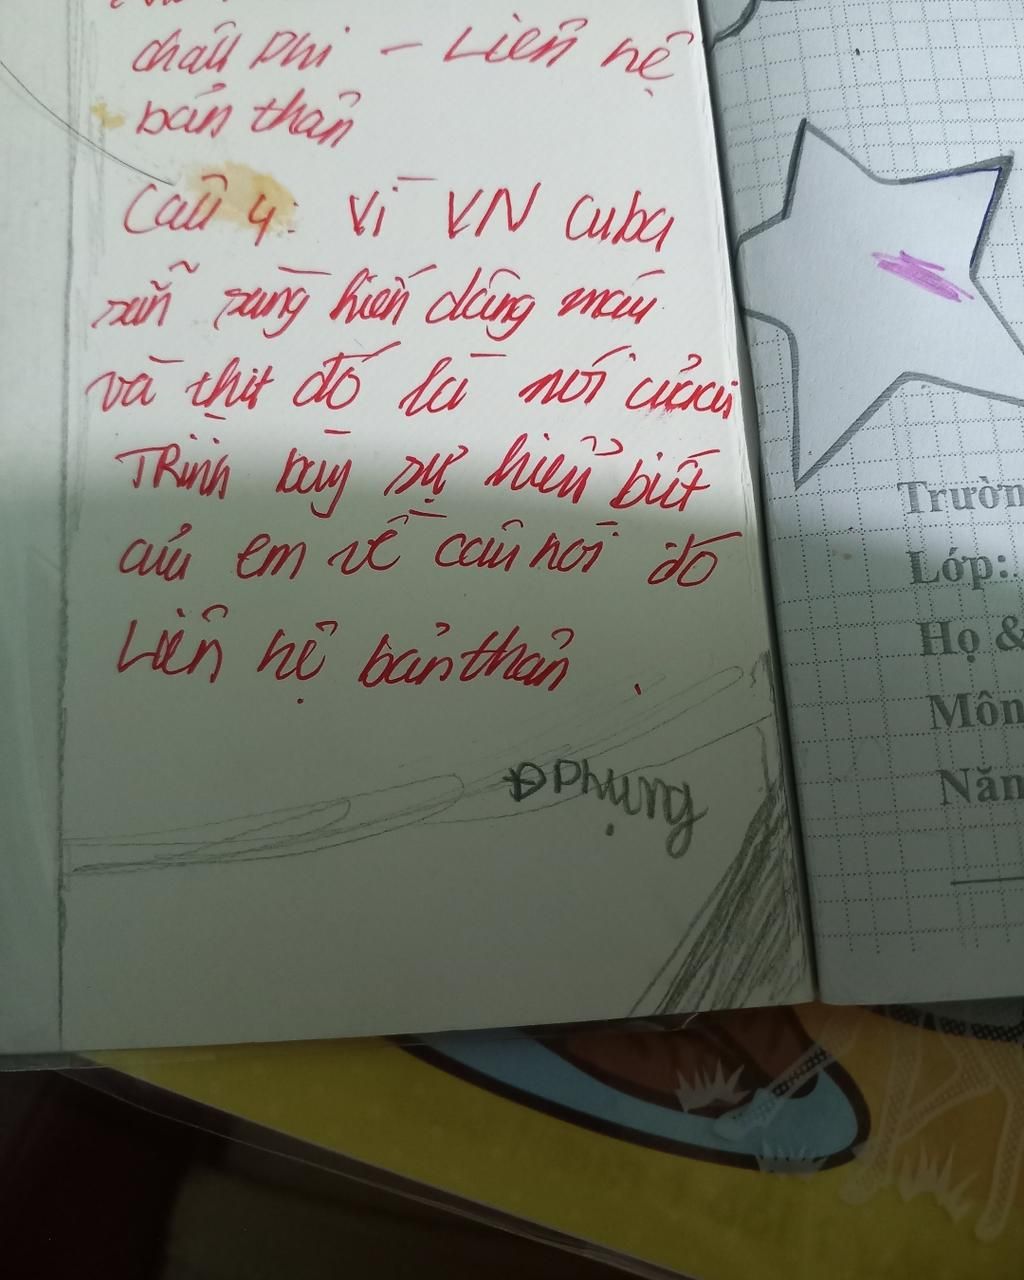 châu Phi - Liên hệ
bản thân
Câu 4: Vì VN Cuba
sẵn sàng hiến dâng máu
và thịt đó là nói của ai
Trình bày sự hiểu biết
của em về câu nói đó
Liên hệ bản thân.
Phụng
Trườn
Lớp:
Họ &
Môn
Năn